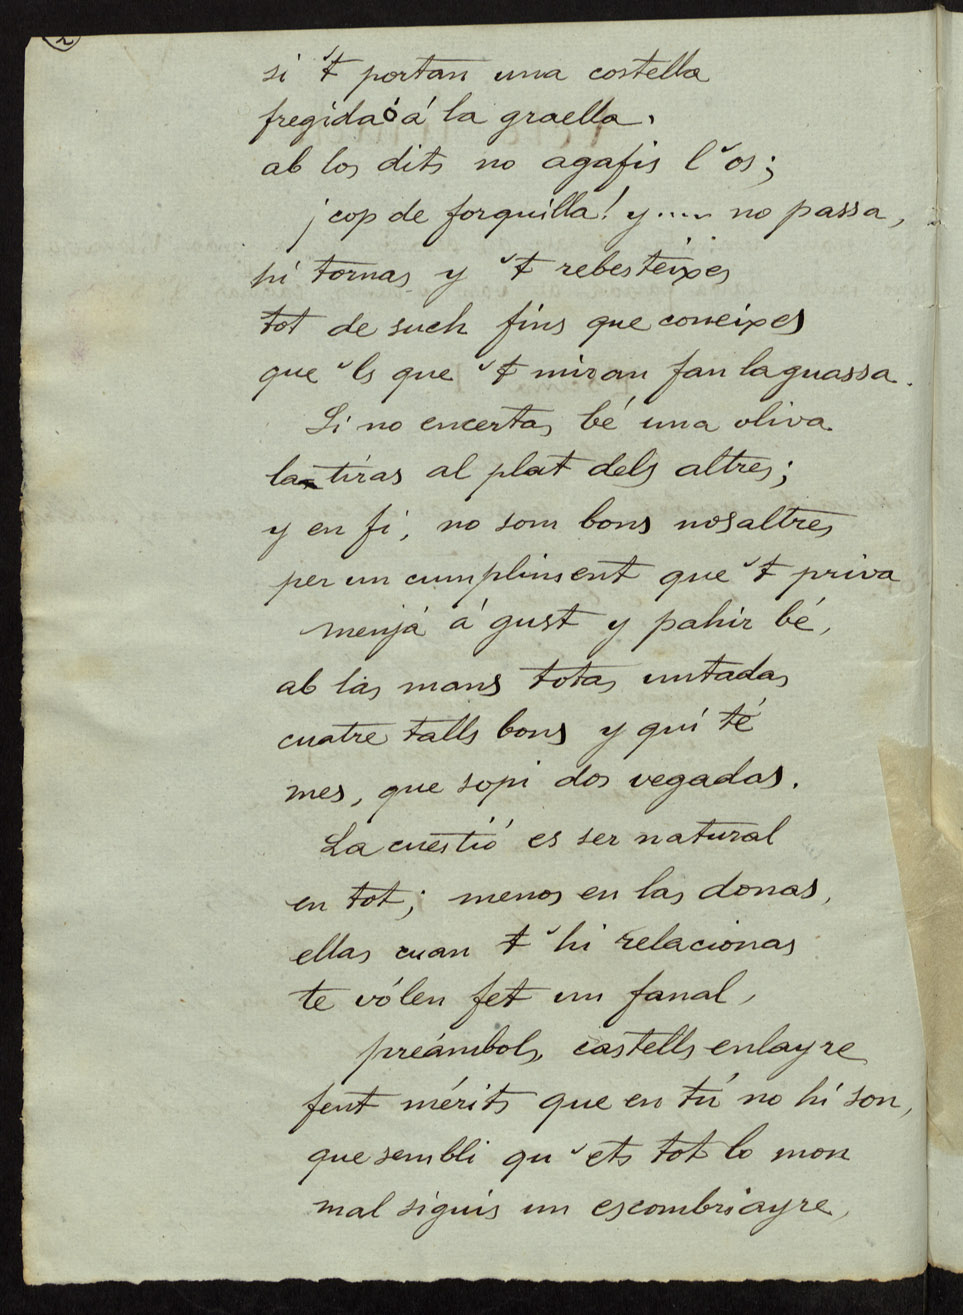 2
si 't portan una costella
fregida ó á la graella.
ab los dits no agafis l'os;
¡cop de forquilla! y..... no passa,
hi tornas y 't rebesteixes
tot de such fins que coneixes
que 'ls que 't miran fan la guassa.
Si no encertas bé una oliva
la tiras al plat dels altres;
y en fi, no som bons nosaltres
per un cumpliment que 't priva
menjá á gust y pahir bé,
ab las mans totas untadas
cuatre talls bons y qui té
mes, que sopi dos vegadas.
La cuestió es ser natural
en tot; menos en las donas,
ellas cuan t'hi relacionas
te vólen fet un fanal,
preámbols, castells enlayre
fent mérits que en tú no hi son,
que sembli qu'ets tot lo mon
mal siguis un escombriayre,